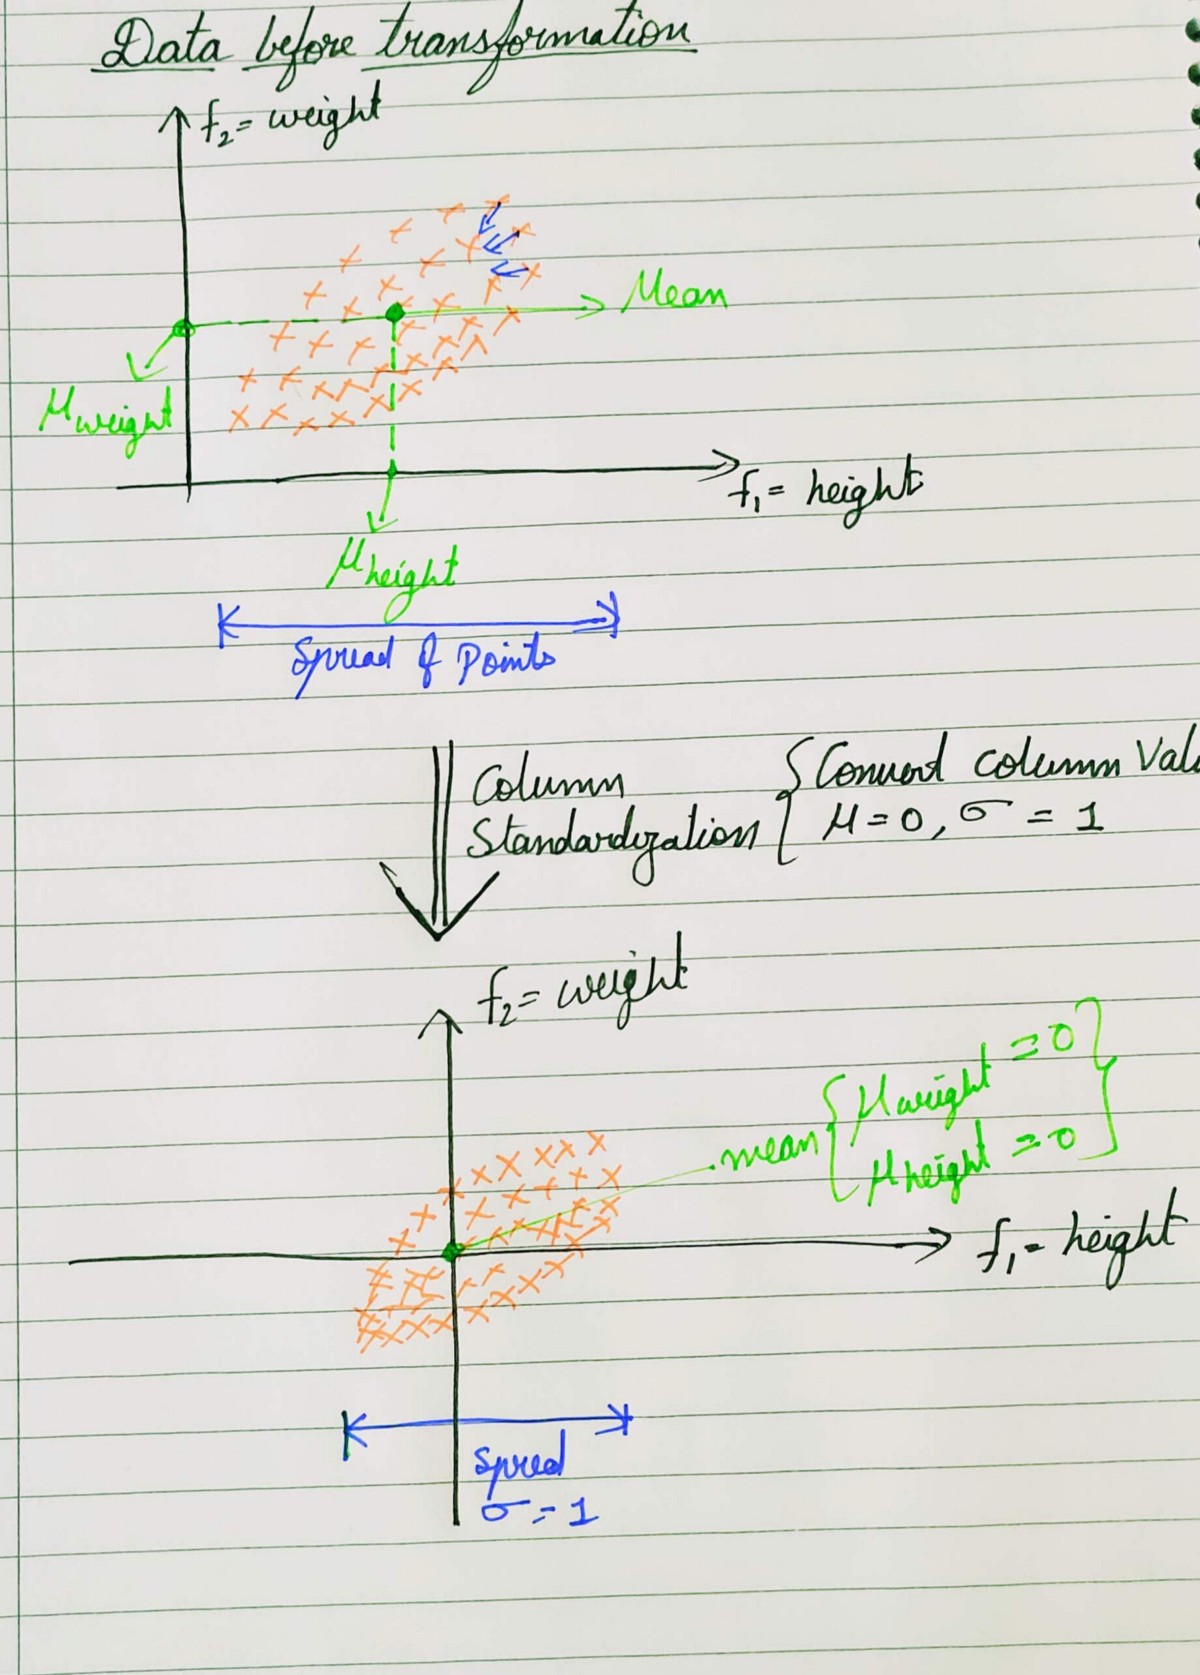 Data before transformation
f₂ = weight
Mean
μ weight
f₁ = height
μ height
Spread of Points
Column
Standardization
{ Convert column Val
μ = 0, σ = 1
f₂ = weight
mean { μ weight = 0 }
μ height = 0
f₁ = height
Spread
σ = 1